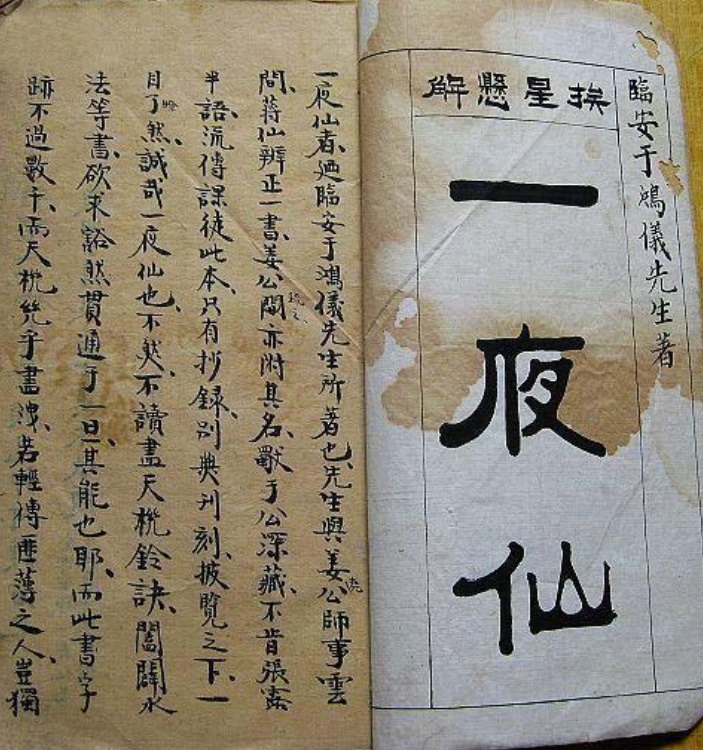 臨安于鴻儀先生著
挨星懸解
一夜仙
一夜仙者、廼臨安于鴻儀先生所著也、先生與姜公師事雲
問、蔣仙辨正一書、姜公間亦附其名、獸于公深藏、不肯張露
半語、流傳課徒此本、只有抄錄、別典刊刻、披覽之下、一
目了然、誠哉一夜仙也、不然、不讀盡天梲鈴訣、闔闢水
法等書、欲求谽然貫通于一旦、其能也耶、而此書字
跡不過數千、而天梲㡬乎盡洩、若輕傳匪薄之人、豈獨